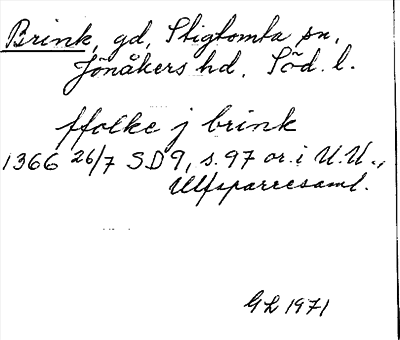 Brink, gd, Stigtomta sn,
Jönåkers hd, Söd. l.
ffolke j brink
1366 26/7 SD 9, s. 97 or. i U.U.,
Ulfsparresaml.
GL 1971